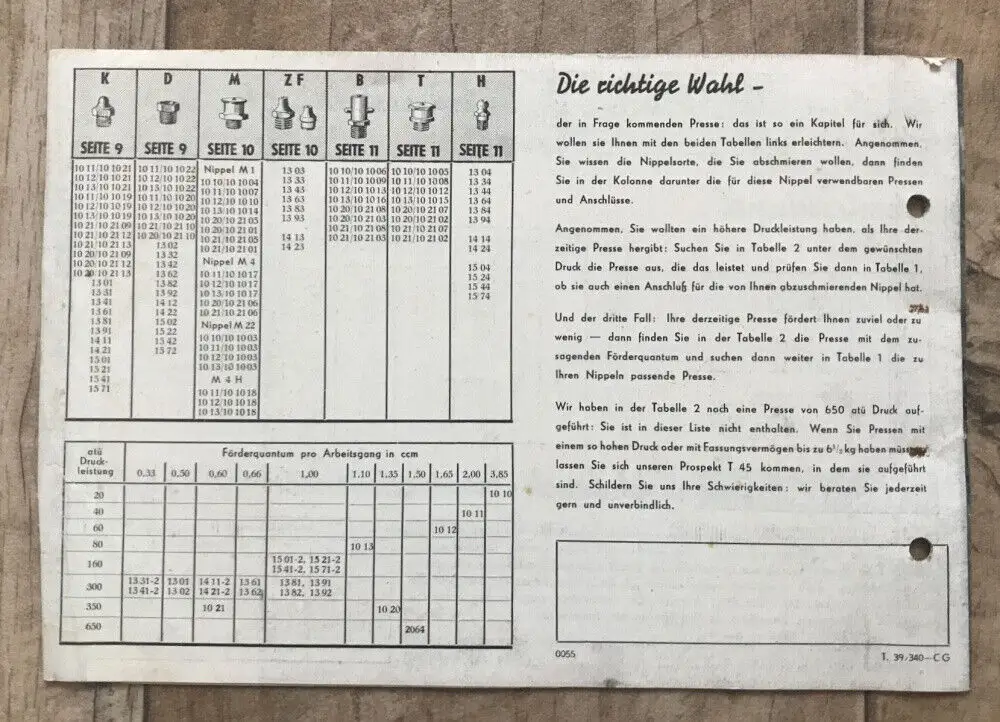 K D M ZF B T H
SEITE 9 SEITE 9 SEITE 10 SEITE 10 SEITE 11 SEITE 11 SEITE 11
10 11/10 10 21
10 12/10 10 21
10 13/10 10 21
10 11/10 10 19
10 12/10 10 19
10 13/10 10 19
10 21/10 21 09
10 21/10 21 12
10 21/10 21 13
10 20/10 21 09
10 20/10 21 12
10 20/10 21 13
13 01
13 31
13 41
13 61
13 81
13 91
14 11
14 21
15 01
15 21
15 41
15 71
10 11/10 10 22
10 12/10 10 22
10 13/10 10 22
10 11/10 10 20
10 12/10 10 20
10 13/10 10 20
10 21/10 21 10
10 20/10 21 10
13 02
13 32
13 42
13 62
13 82
13 92
14 12
14 22
15 02
15 22
15 42
15 72
Nippel M 1
10 10/10 10 04
10 11/10 10 07
10 12/10 10 10
10 13/10 10 14
10 20/10 21 05
10 20/10 21 01
10 21/10 21 05
10 21/10 21 01
Nippel M 4
10 11/10 10 17
10 12/10 10 17
10 13/10 10 17
10 20/10 21 06
10 21/10 21 06
Nippel M 22
10 10/10 10 03
10 11/10 10 03
10 12/10 10 03
10 13/10 10 03
M 4 H
10 11/10 10 18
10 12/10 10 18
10 13/10 10 18
13 03
13 33
13 43
13 63
13 83
13 93
14 13
14 23
10 10/10 10 06
10 11/10 10 09
10 12/10 10 13
10 13/10 10 16
10 20/10 21 08
10 20/10 21 03
10 21/10 21 08
10 21/10 21 03
10 10/10 10 05
10 11/10 10 08
10 12/10 10 12
10 13/10 10 15
10 20/10 21 07
10 20/10 21 02
10 21/10 21 07
10 21/10 21 02
13 04
13 34
13 44
13 64
13 84
13 94
14 14
14 24
15 04
15 24
15 44
15 74
atü
Druck-
leistung
Förderquantum pro Arbeitsgang in ccm
0,33 0,50 0,60 0,66 1,00 1,10 1,35 1,50 1,65 2,00 3,85
20 10 10
40 10 11
60 10 12
80 10 13
160 15 01-2, 15 21-2
15 41-2, 15 71-2
300 13 31-2 13 01 14 11-2 13 61 13 81, 13 91
13 41-2 13 02 14 21-2 13 62 13 82, 13 92
350 10 21 10 20
650 2064
Die richtige Wahl –
der in Frage kommenden Presse: das ist so ein Kapitel für sich. Wir
wollen sie Ihnen mit den beiden Tabellen links erleichtern. Angenommen,
Sie wissen die Nippelsorte, die Sie abschmieren wollen, dann finden
Sie in der Kolonne darunter die für diese Nippel verwendbaren Pressen
und Anschlüsse.
Angenommen, Sie wollten ein höhere Druckleistung haben, als Ihre der-
zeitige Presse hergibt: Suchen Sie in Tabelle 2 unter dem gewünschten
Druck die Presse aus, die das leistet und prüfen Sie dann in Tabelle 1,
ob sie auch einen Anschluß für die von Ihnen abzuschmierenden Nippel hat.
Und der dritte Fall: Ihre derzeitige Presse fördert Ihnen zuviel oder zu
wenig — dann finden Sie in der Tabelle 2 die Presse mit dem zu-
sagenden Förderquantum und suchen dann weiter in Tabelle 1 die zu
Ihren Nippeln passende Presse.
Wir haben in der Tabelle 2 noch eine Presse von 650 atü Druck auf-
geführt: Sie ist in dieser Liste nicht enthalten. Wenn Sie Pressen mit
einem so hohen Druck oder mit Fassungsvermögen bis zu 6½ kg haben müssen,
lassen Sie sich unseren Prospekt T 45 kommen, in dem sie aufgeführt
sind. Schildern Sie uns Ihre Schwierigkeiten: wir beraten Sie jederzeit
gern und unverbindlich.
0055
T. 39/340—CG